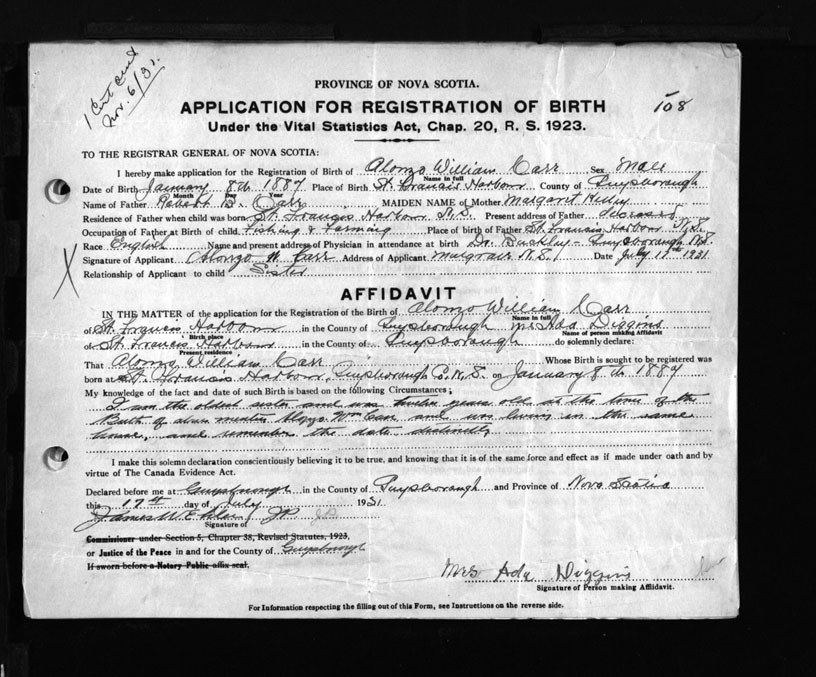 1 Cert sent
Nov. 6/31.
PROVINCE OF NOVA SCOTIA.
APPLICATION FOR REGISTRATION OF BIRTH
108
Under the Vital Statistics Act, Chap. 20, R. S. 1923.
TO THE REGISTRAR GENERAL OF NOVA SCOTIA:
I hereby make application for the Registration of Birth of Alonzo William Carr Sex Male
Name in full
Date of Birth January 8th 1887 Place of Birth St. Francis Harbour County of Guysborough
Month Day Year
Name of Father Robert B. Carr MAIDEN NAME of Mother Margaret
Residence of Father when child was born St. Francis Harbour N.S. Present address of Father Deceased
Occupation of Father at Birth of child Fishing & Farming Place of birth of Father St. Francis Harbour N.S.
Race English Name and present address of Physician in attendance at birth Dr. Buckley - Guysborough N.S.
Signature of Applicant Alonzo W. Carr Address of Applicant Mulgrave N.S. Date July 17 1931
Relationship of Applicant to child Sister
AFFIDAVIT
IN THE MATTER of the application for the Registration of the Birth of Alonzo William Carr
Name in full
of St. Francis Harbour in the County of Guysborough Mrs Ada Diggins
Birth place Name of person making Affidavit
of St. Francis Harbour in the County of Guysborough do solemnly declare:
Present residence
That Alonzo William Carr Whose Birth is sought to be registered was
born at St. Francis Harbour, Guysborough C. N.S. on January 8th 1887
My knowledge of the fact and date of such Birth is based on the following Circumstances;
I am the oldest sister and was twelve years old at the time of the
Birth of above Alonzo Wm Carr and was living in the same
house, and remember the date distinctly
I make this solemn declaration conscientiously believing it to be true, and knowing that it is of the same force and effect as if made under oath and by
virtue of The Canada Evidence Act.
Declared before me at Guysborough in the County of Guysborough and Province of Nova Scotia
this 17th day of July 1931
James W. JP.
Signature of
Commissioner under Section 5, Chapter 38, Revised Statutes, 1923,
or Justice of the Peace in and for the County of Guysborough
If sworn before a Notary Public affix seal.
Mrs Ada Diggins
Signature of Person making Affidavit.
For Information respecting the filling out of this Form, see Instructions on the reverse side.